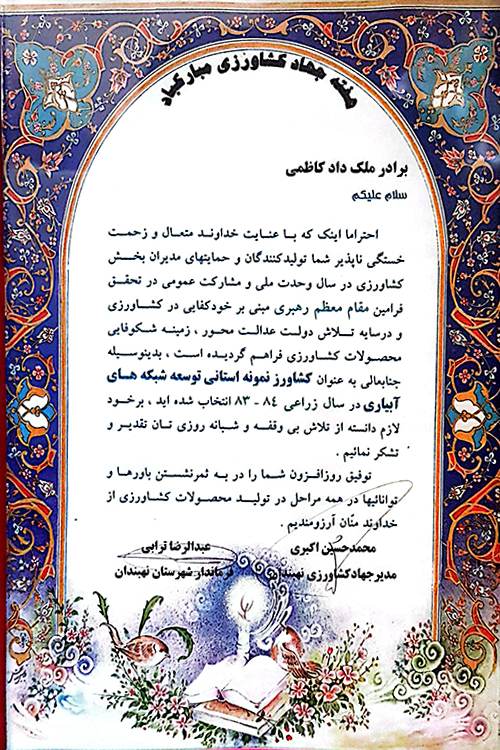 هفته جهاد کشاورزی مبارکباد
برادر ملک داد کاظمی
سلام علیکم
احتراما اینک که با عنایت خداوند متعال و زحمت
خستگی ناپذیر شما تولیدکنندگان و حمایتهای مدیران بخش
کشاورزی در سال وحدت ملی و مشارکت عمومی در تحقق
فرامین مقام معظم رهبری مبنی بر خودکفایی در کشاورزی
و درسایه تلاش دولت عدالت محور ، زمینه شکوفایی
محصولات کشاورزی فراهم گردیده است ، بدینوسیله
جنابعالی به عنوان کشاورز نمونه استانی توسعه شبکه های
آبیاری در سال زراعی ۸۴ - ۸۳ انتخاب شده اید ، برخود
لازم دانسته از تلاش بی وقفه و شبانه روزی تان تقدیر و
تشکر نمائیم .
توفیق روزافزون شما را در به ثمرنشستن باورها و
توانائیها در همه مراحل در تولید محصولات کشاورزی از
خداوند منّان آرزومندیم .
محمدحسین اکبری
مدیرجهادکشاورزی نهبندان
عبدالرضا ترابی
فرماندار شهرستان نهبندان